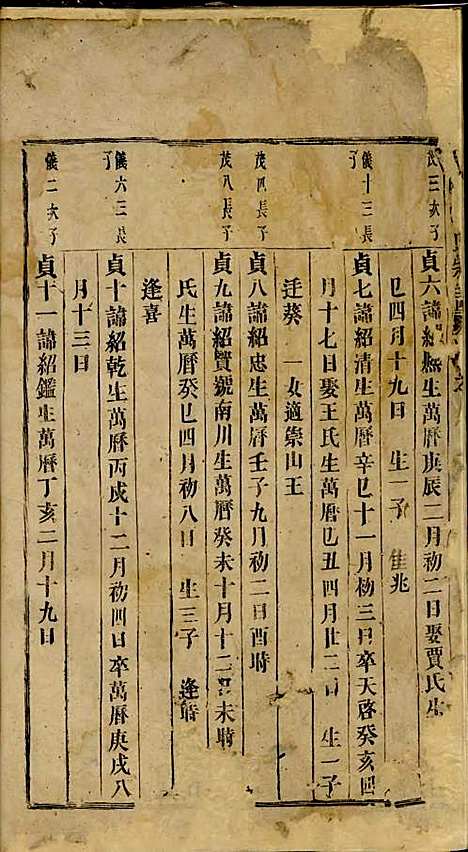 茂三次子
貞六諱紹無生萬曆庚辰三月初二日娶賈氏生
巳四月十九日 生一子 隹兆
儀十三長子
貞七諱紹清生萬曆辛巳十一月初三日卒天啓癸亥四
月十七日娶王氏生萬曆己丑四月廿二日 生一子
迋葵 一女適崇山王
茂四長子
貞八諱紹忠生萬曆壬子九月初二日酉時
茂八長子
貞九諱紹贊號南川生萬曆癸未十月十二日未時
氏生萬曆癸巳四月初八日 生三子 逢時
逢喜
儀六三長子
貞十諱紹乾生萬曆丙戌十二月初四日卒萬曆庚戌八
月十三日
儀二次子
貞十一諱紹鑑生萬曆丁亥二月十九日